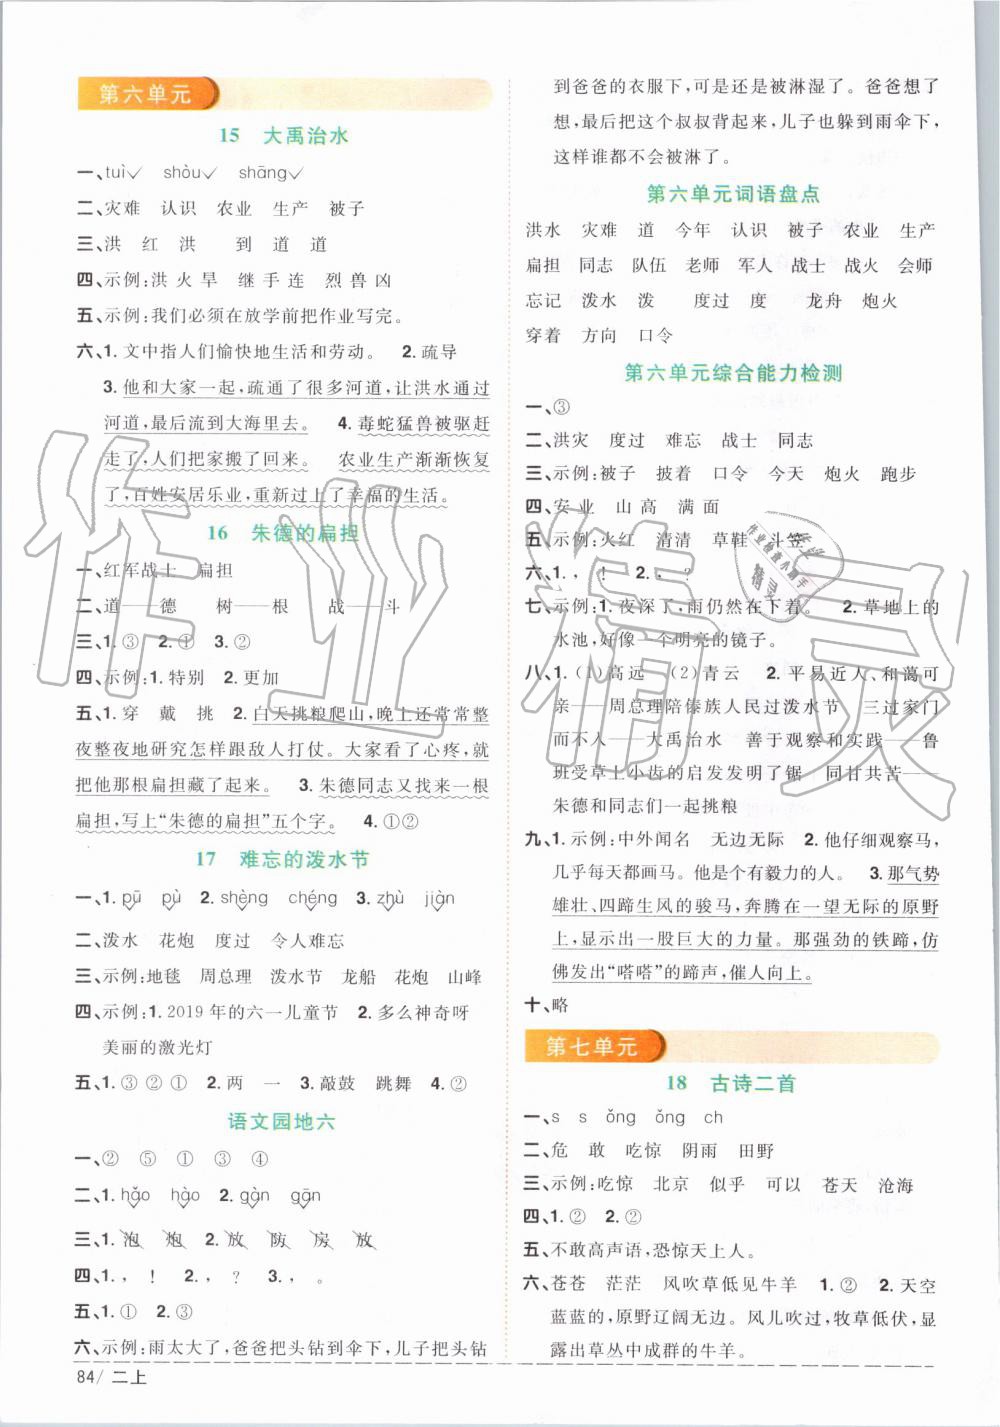 第六单元
15 大禹治水
一、tuì✓ shòu✓ shāng✓
二、灾难 认识 农业 生产 被子
三、洪 红 洪 到 道 道
四、示例:洪 火 旱 继 手 连 烈 兽 凶
五、示例:我们必须在放学前把作业写完。
六、1. 文中指人们愉快地生活和劳动。 2. 疏导
3. 他和大家一起,疏通了很多河道,让洪水通过
河道,最后流到大海里去。 4. 毒蛇猛兽被驱赶
走了,人们把家搬了回来。 农业生产渐渐恢复
了,百姓安居乐业,重新过上了幸福的生活。
16 朱德的扁担
一、红军战士 扁担
二、道——德 树——根 战——斗
三、1. ③ 2. ① 3. ②
四、示例:1. 特别 2. 更加
五、1. 穿 戴 挑 2. 白天挑粮爬山,晚上还常常整
夜整夜地研究怎样跟敌人打仗。大家看了心疼,就
把他那根扁担藏了起来。 3. 朱德同志又找来一根
扁担,写上“朱德的扁担”五个字。 4. ①②
17 难忘的泼水节
一、1. pū pù 2. shèng chéng 3. zhù jiàn
二、泼水 花炮 度过 令人难忘
三、示例:地毯 周总理 泼水节 龙船 花炮 山峰
四、示例:1. 2019 年的六一儿童节 2. 多么神奇呀
美丽的激光灯
五、1. ③ ② ① 2. 两 一 3. 敲鼓 跳舞 4. ②
语文园地六
一、② ⑤ ① ③ ④
二、1. hǎo hào 2. gàn gān
三、1. 泡 炮 2. 放 防 房 放
四、1. , ! 2. , ? 3. , 。
五、1. ① 2. ②
六、示例:雨太大了,爸爸把头钻到伞下,儿子把头钻
84/ 二上
到爸爸的衣服下,可是还是被淋湿了。爸爸想了
想,最后把这个叔叔背起来,儿子也躲到雨伞下,
这样谁都不会被淋了。
第六单元词语盘点
洪水 灾难 道 今年 认识 被子 农业 生产
扁担 同志 队伍 老师 军人 战士 战火 会师
忘记 泼水 泼 度过 度 龙舟 炮火
穿着 方向 口令
第六单元综合能力检测
一、③
二、洪灾 度过 难忘 战士 同志
三、示例:被子 披着 口令 今天 炮火 跑步
四、安 业 山 高 满 面
五、示例:火红 清清 草鞋 斗笠
六、1. , ! 2. , ?
七、示例:1. 夜深了,雨仍然在下着。 2. 草地上的
水池,好像一个明亮的镜子。
八、1. (1)高远 (2)青云 2. 平易近人、和蔼可
亲——周总理陪傣族人民过泼水节 三过家门
而不入——大禹治水 善于观察和思考——鲁
班受草上小齿的启发发明了锯 同甘共苦——
朱德和同志们一起挑粮
九、1. 示例:中外闻名 无边无际 2. 他仔细观察马,
几乎每天都画马。他是一个有毅力的人。 3. 那气势
雄壮、四蹄生风的骏马,奔腾在一望无际的原野
上,显示出一股巨大的力量。那强劲的铁蹄,仿
佛发出“嗒嗒”的蹄声,催人向上。
十、略
第七单元
18 古诗二首
一、s s ǒng ǒng ch
二、危 敢 吃惊 阴雨 田野
三、示例:吃惊 北京 似乎 可以 苍天 沧海
四、1. ② 2. ②
五、不敢高声语,恐惊天上人。
六、苍苍 茫茫 风吹草低见牛羊 1. ② 2. 天空
蓝蓝的,原野辽阔无边。风儿吹过,牧草低伏,显
露出草丛中成群的牛羊。
作业精灵
作业检查小助手
精灵